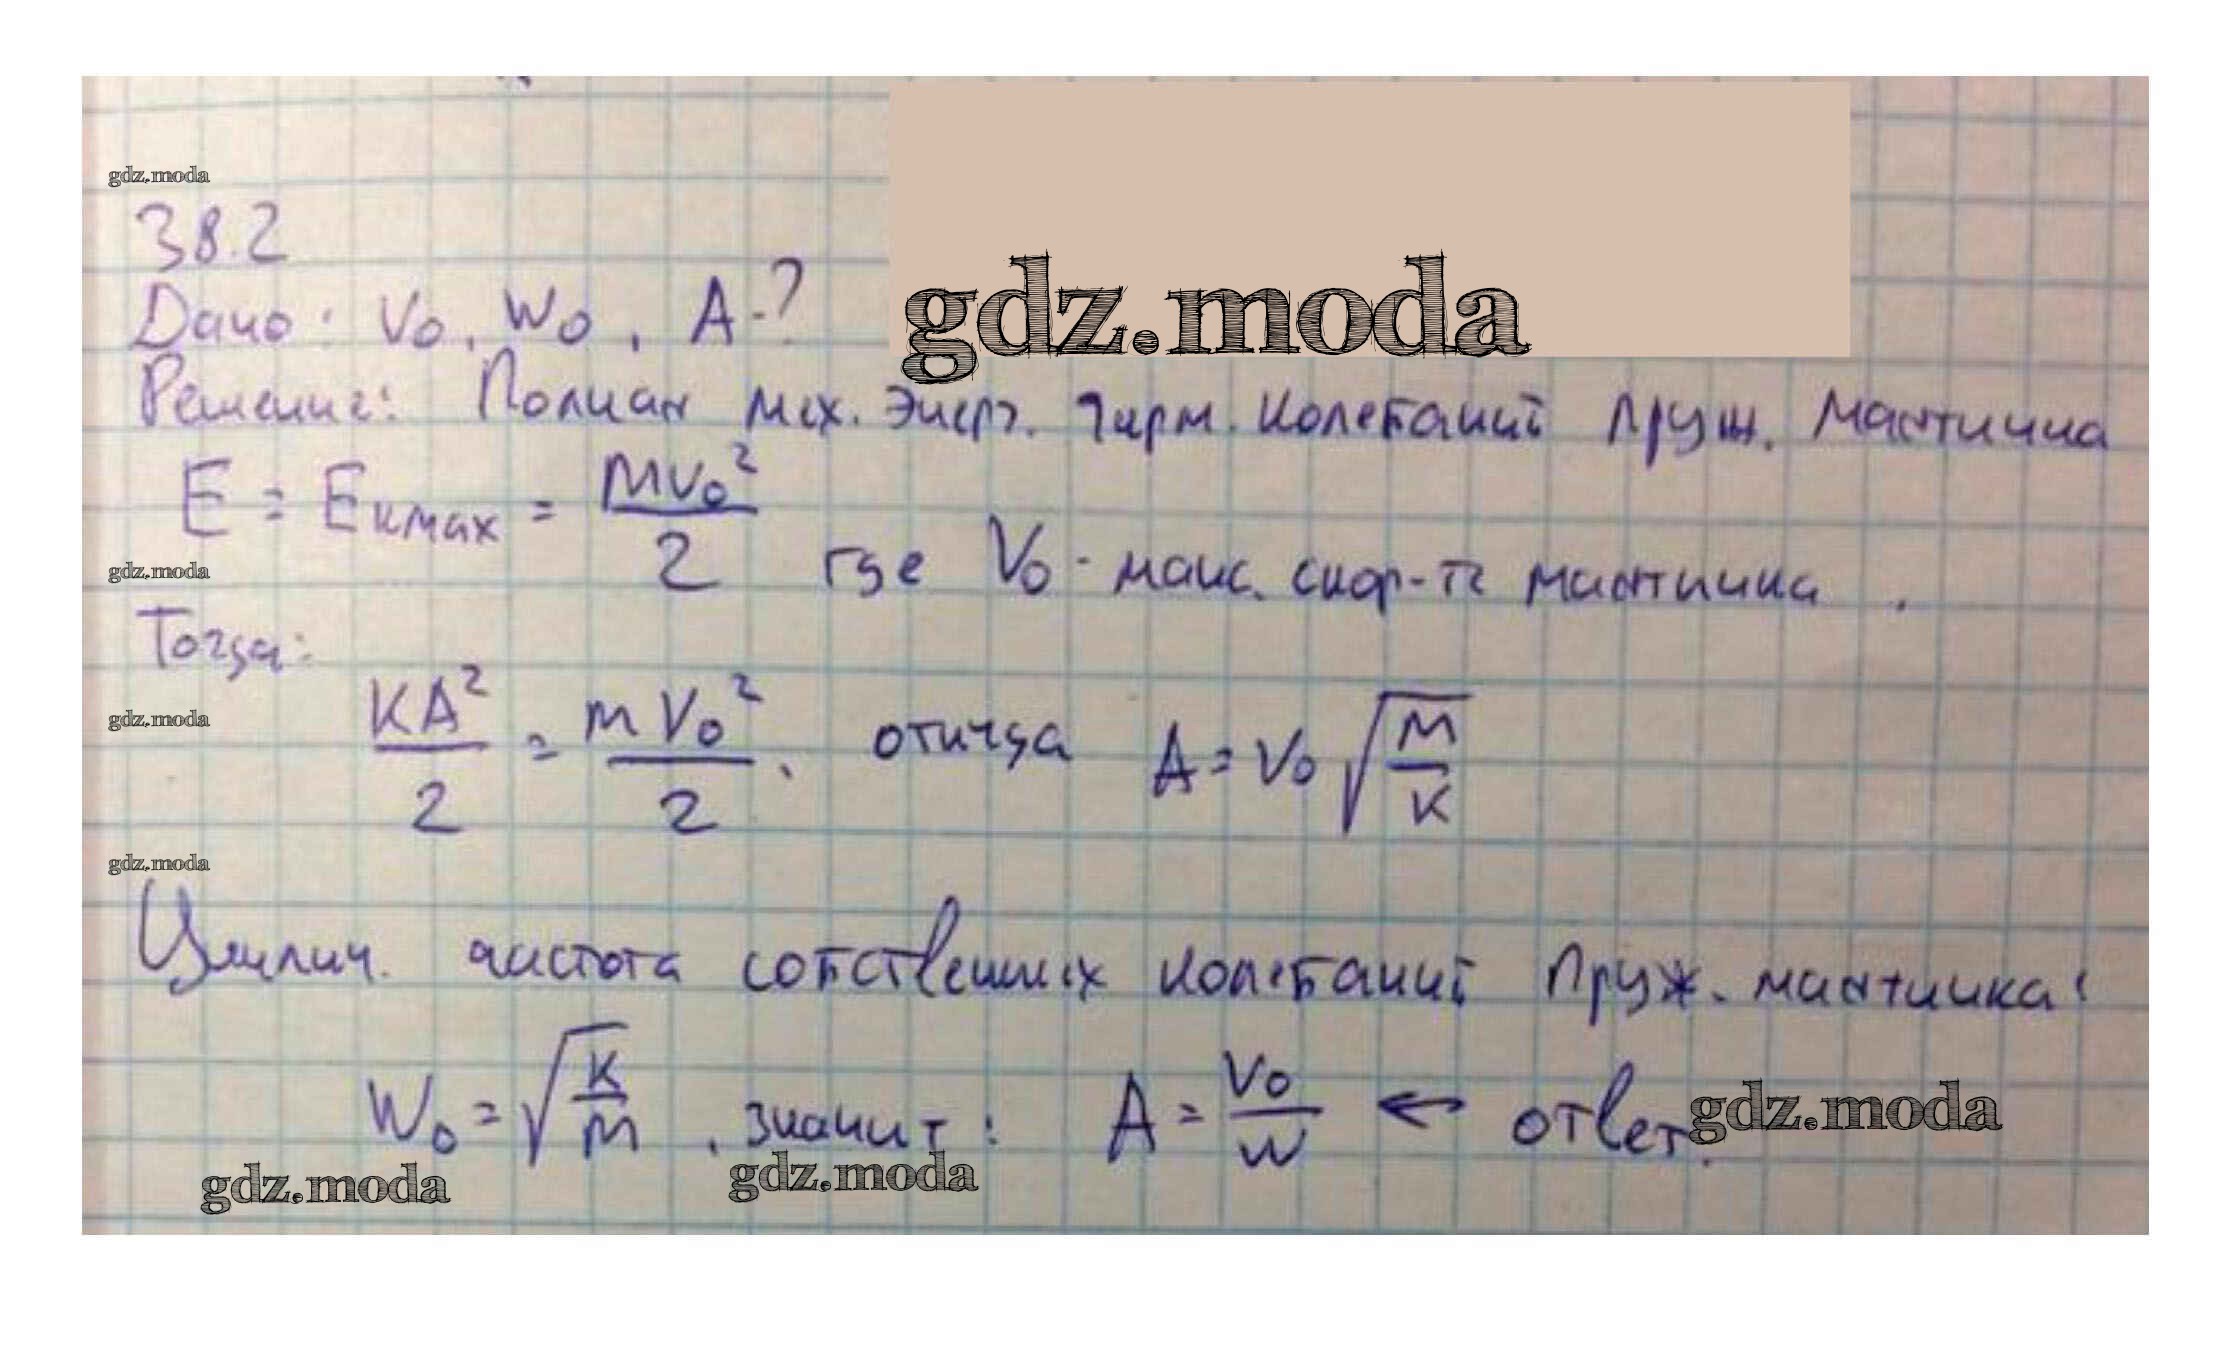 gdz.moda
38.2
gdz.moda
Дано: V₀, W₀, A-?
Решение: Полная мех. энерг. гарм. колебаний пруж. маятника
E = Eкmax = mv₀²/2 где V₀ - макс. скор-ть маятника.
gdz.moda
Тогда:
gdz.moda
KA²/2 = mV₀²/2, откуда A = V₀√(m/k)
gdz.moda
Циклич. частота собственных колебаний пруж. маятника:
W₀ = √(k/m), значит: A = V₀/W ← ответ.
gdz.moda
gdz.moda
gdz.moda